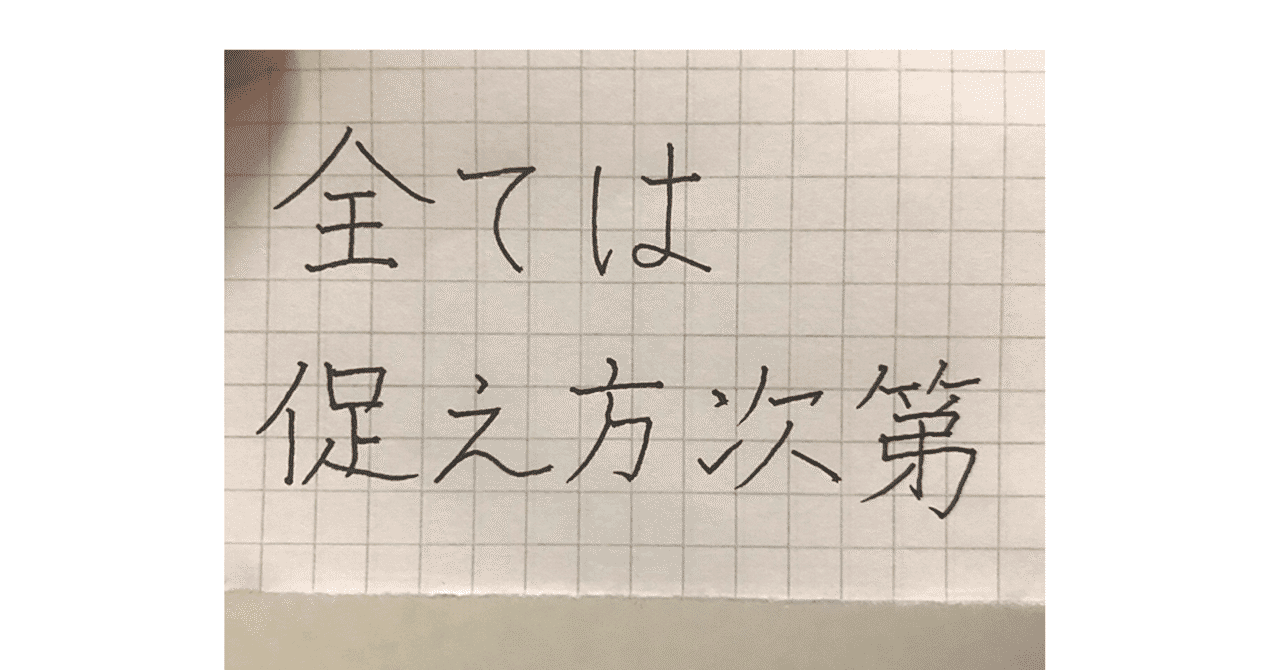 全ては
促え方次第